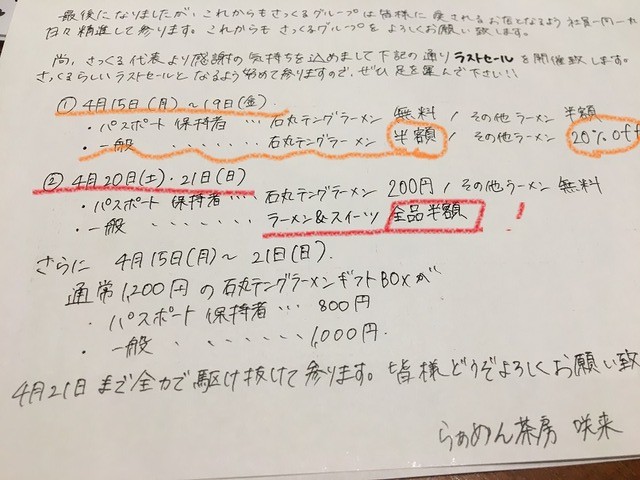 最後になりましたが、これからもさっくるグループは皆様に愛されるお店となるよう社員一同一丸
日々精進して参ります。これからもさっくるグループをよろしくお願い致します。
尚、さっくる代表より感謝の気持ちを込めまして下記の通りラストセールを開催致します。
さっくるらしいラストセールとなるよう努めて参りますので、ぜひ足を運んで下さい!!
① 4月15日(月)~19日(金)
・パスポート保持者 … 石丸テングラーメン 無料 / その他ラーメン 半額
・一般 ・・・・・・ 石丸テングラーメン 半額 / その他ラーメン 20%off
② 4月20日(土)・21日(日)
・パスポート保持者 … 石丸テングラーメン 200円 / その他ラーメン 無料
・一般 ・・・・・・ ラーメン&スイーツ 全品半額 !
さらに 4月15日(月)~21日(日)
通常1,200円の石丸テングラーメンギフトBOXが
・パスポート保持者 … 800円
・一般 ・・・・・・ 1,000円
4月21日まで全力で駆け抜けて参ります。皆様どうぞよろしくお願い致
らぁめん茶房 咲来